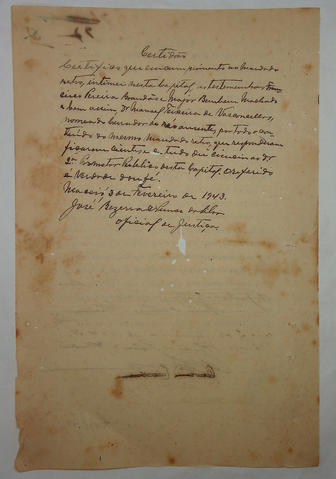 Certidão
Certifico que em cumprimento ao mandado
retro, intimei nesta Capital, as testemunhas Fran
cisco Pereira Brandão e Major Benhem Machado
e bem assim, Dr. Manoel Teixeira de Vasconcellos,
nomeado Curador do por todo o con
teúdo do mesmo mandado retro, que responderam
ficaram cientes, e tudo dei ciencia ao Dr
2º Promotor Publico desta Capital. O referido
é verdade dou fé.
Maceió 3 de Fevereiro de 1943.
José Bezerra da Silva
Oficial de Justiça